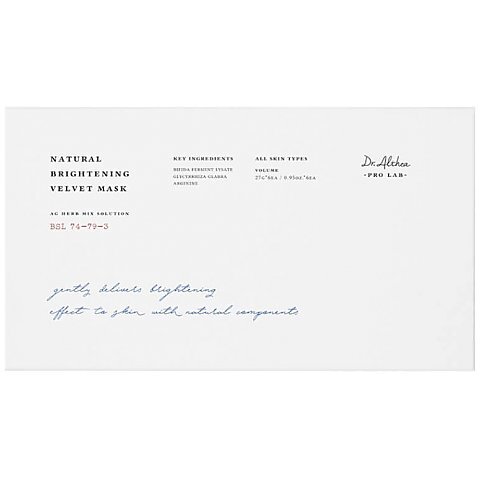 NATURAL
BRIGHTENING
VELVET MASK
AG HERB MIX SOLUTION
BSL 74-79-3
KEY INGREDIENTS
BIFIDA FERMENT LYSATE
GLYCYRRHIZA GLABRA
ARGININE
ALL SKIN TYPES
VOLUME
27G*6EA / 0.95OZ.*6EA
Dr.Althea
-PRO LAB-
gently delivers brightening
effect to skin with natural components